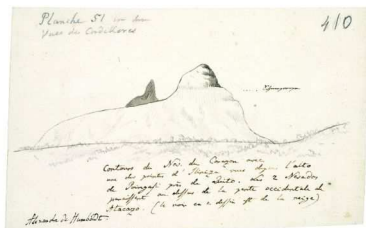 Planche 51 des
Vues des Cordillères
410
Contours du Nev. du Corazon avec
un des pointes d' vues depuis l'alto
de Poingasi près de Quito. Les 2 Nevados
paraissent au dessus de la pente occidentale d'
Atacazo. (Je vois en a dessiné de la neige)
Alexandre de Humboldt